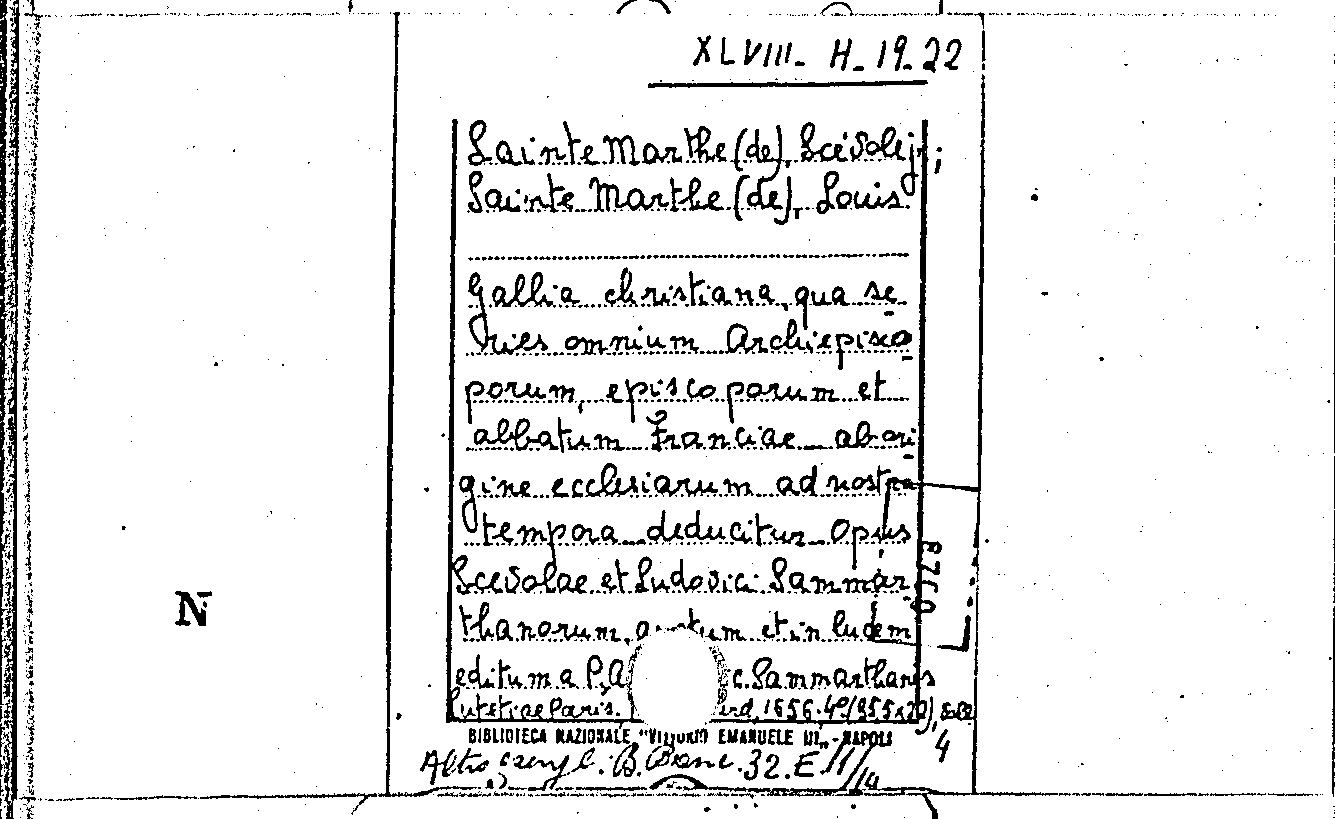 XLVIII- H-19-22
Sainte Marthe (de), Scévole j;
Sainte Marthe (de), Louis
Gallia christiana, qua se-
ries omnium Archiepisco-
porum, episcoporum et
abbatum Franciae ab ori-
gine ecclesiarum ad nostra
tempora deducitur Opus
Scevolae et Ludovici Sammar-
thanorum, auctum et in lucem
editum a P. A c. Sammarthanis
Lutetiae Paris. ard, 1656. 4°
BIBLIOTECA NAZIONALE "VITTORIO EMANUELE III" - NAPOLI
4
Altro B. Banc. 32. E
N